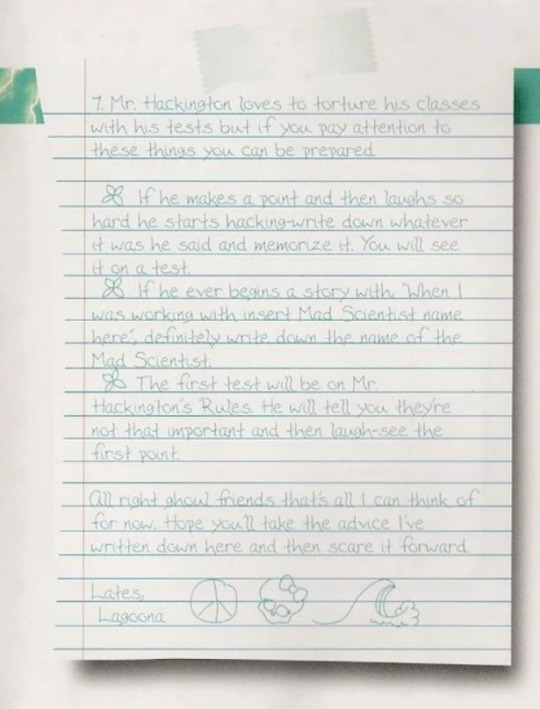 7. Mr. Hackington loves to torture his classes
with his tests but if you pay attention to
these things you can be prepared.
If he makes a point and then laughs so
hard he starts hacking-write down whatever
it was he said and memorize it. You will see
it on a test.
If he ever begins a story with, "When I
was working with insert Mad Scientist name
here", definitely write down the name of the
Mad Scientist.
The first test will be on Mr.
Hackington's Rules. He will tell you they're
not that important and then laugh-see the
first point.
All right ghoul friends that's all I can think of
for now. Hope you'll take the advice I've
written down here and then scare it forward.
Lates,
Lagoona